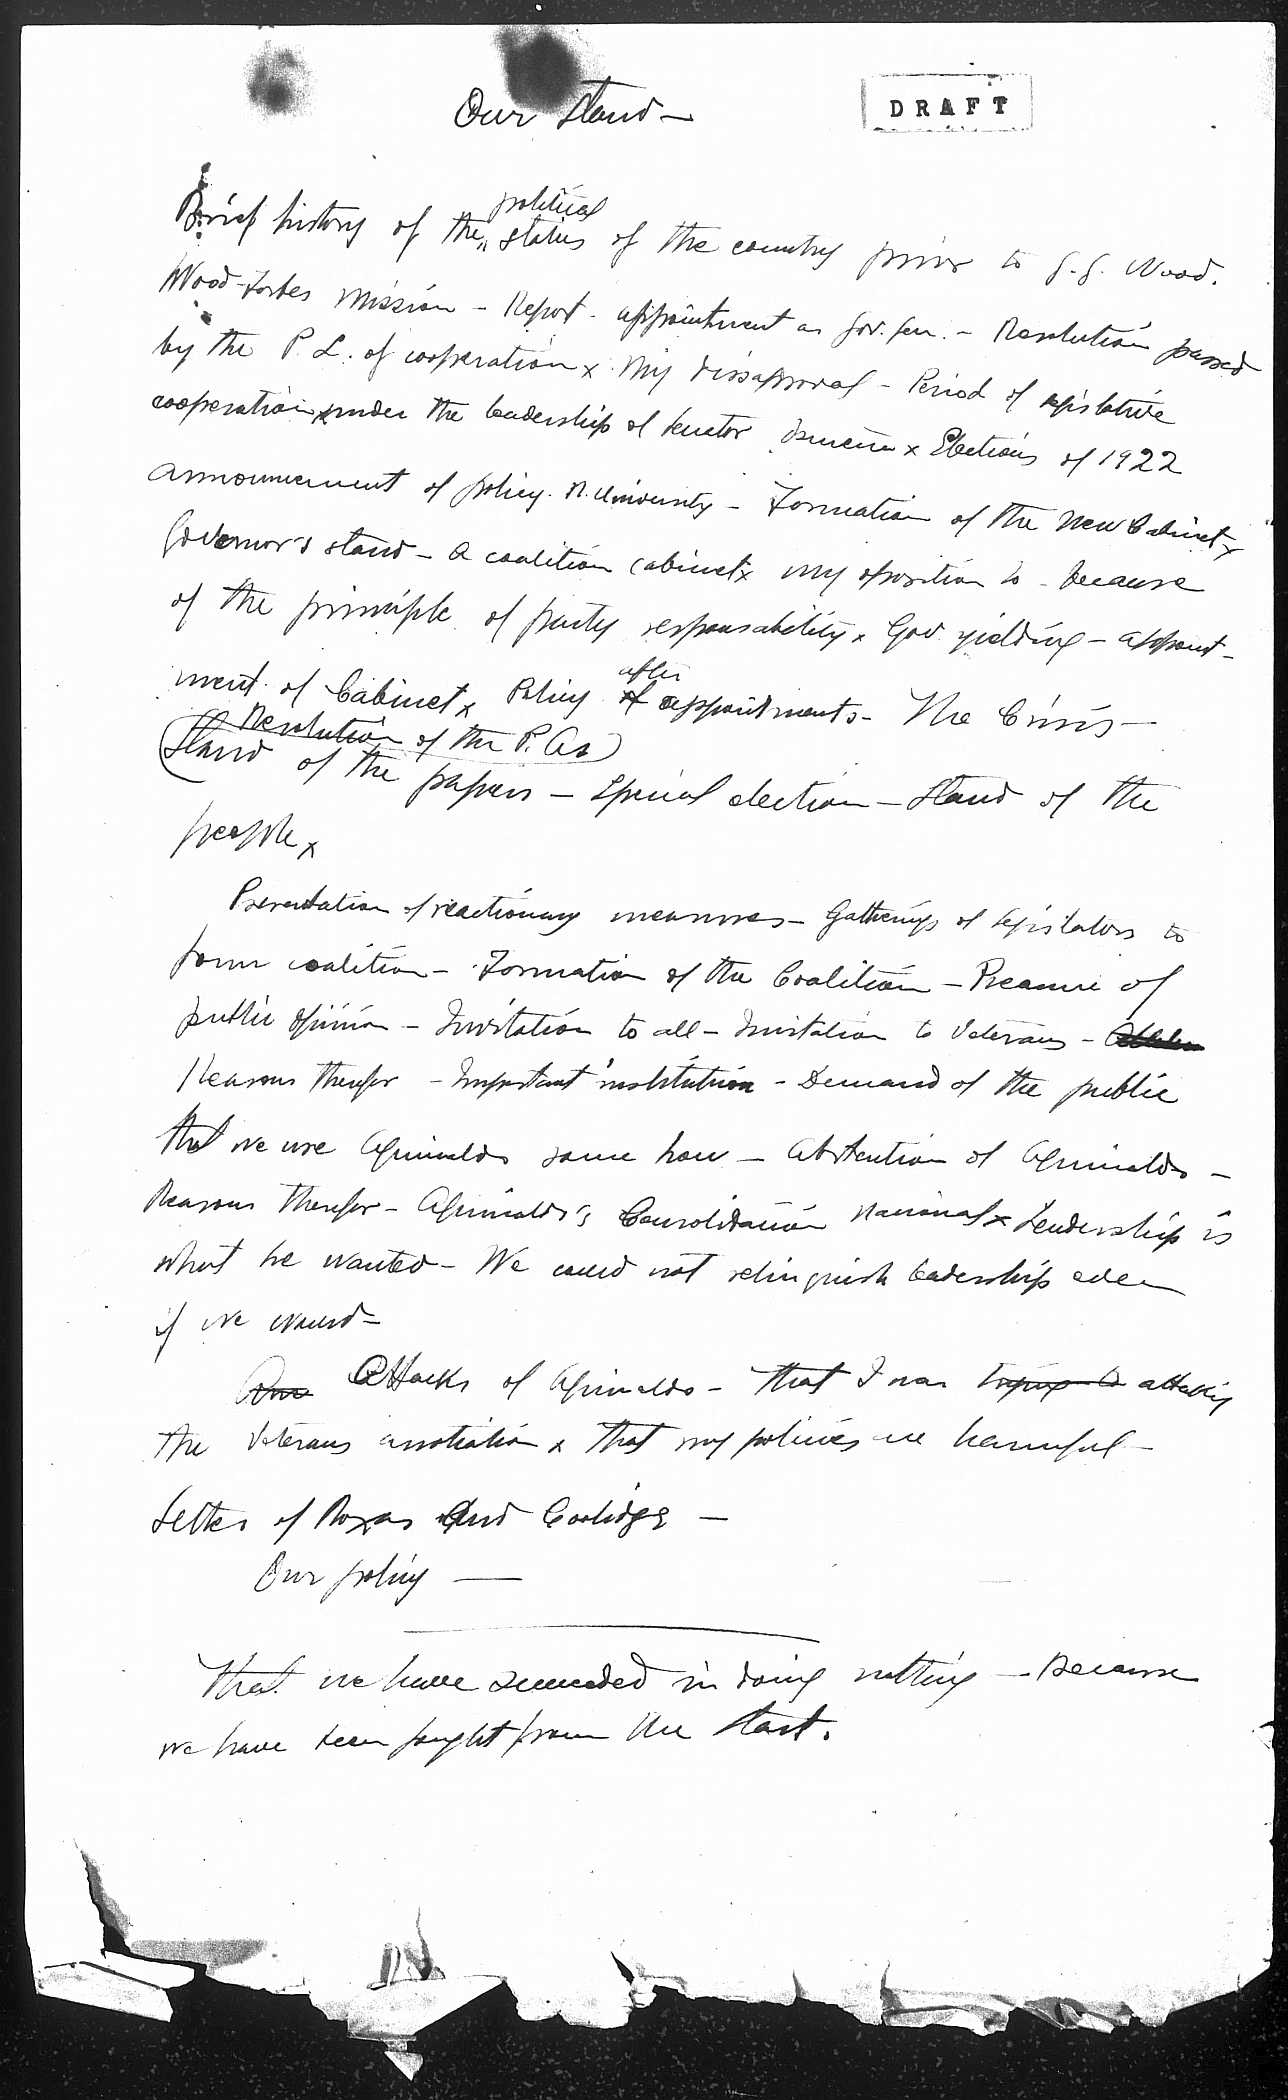 Our Stand —
DRAFT
political
Brief history of the status of the country prior to G. G. Wood.
Wood-Forbes Mission - Report - appointment as Gov. Gen. - Resolution passed
by the P. L. of cooperation x My dissaproval - Period of legislative
cooperation x under the leadership of Senator x Elections of 1922
announcement of policy. N. University - Formation of the New Cabinet x
Governor's stand - A coalition cabinet x My oposition to - because
of the principle of party responsability x Gov yielding - appoint-
after
ment of Cabinet x Policy of appointments - The Crisis -
Resolution of the P. As)
(Stand of the papers - Special election - Stand of the
people x
Presentation of reactionary measures - Gatherings of legislators to
form coalition - Formation of the Coalition - Preasure of
public opinion - Invitation to all - Invitation to Veterans -
Reasons therefor - Important institution - Demand of the public
that we use Aguinaldo some how - Abstention of Aguinaldo -
Reasons therefor - Aguinaldo's Consolidacion Nacional x Leadership is
what he wanted - We could not relinquish leadership even
if we would -
Our Attacks of Aguinaldo - That I was trying to attacking
the Veterans association x That my policies are harmful -
Letter of Roxas and Coolidge -
Our policy —
That we have succeeded in doing nothing - Because
we have been fought from the start.